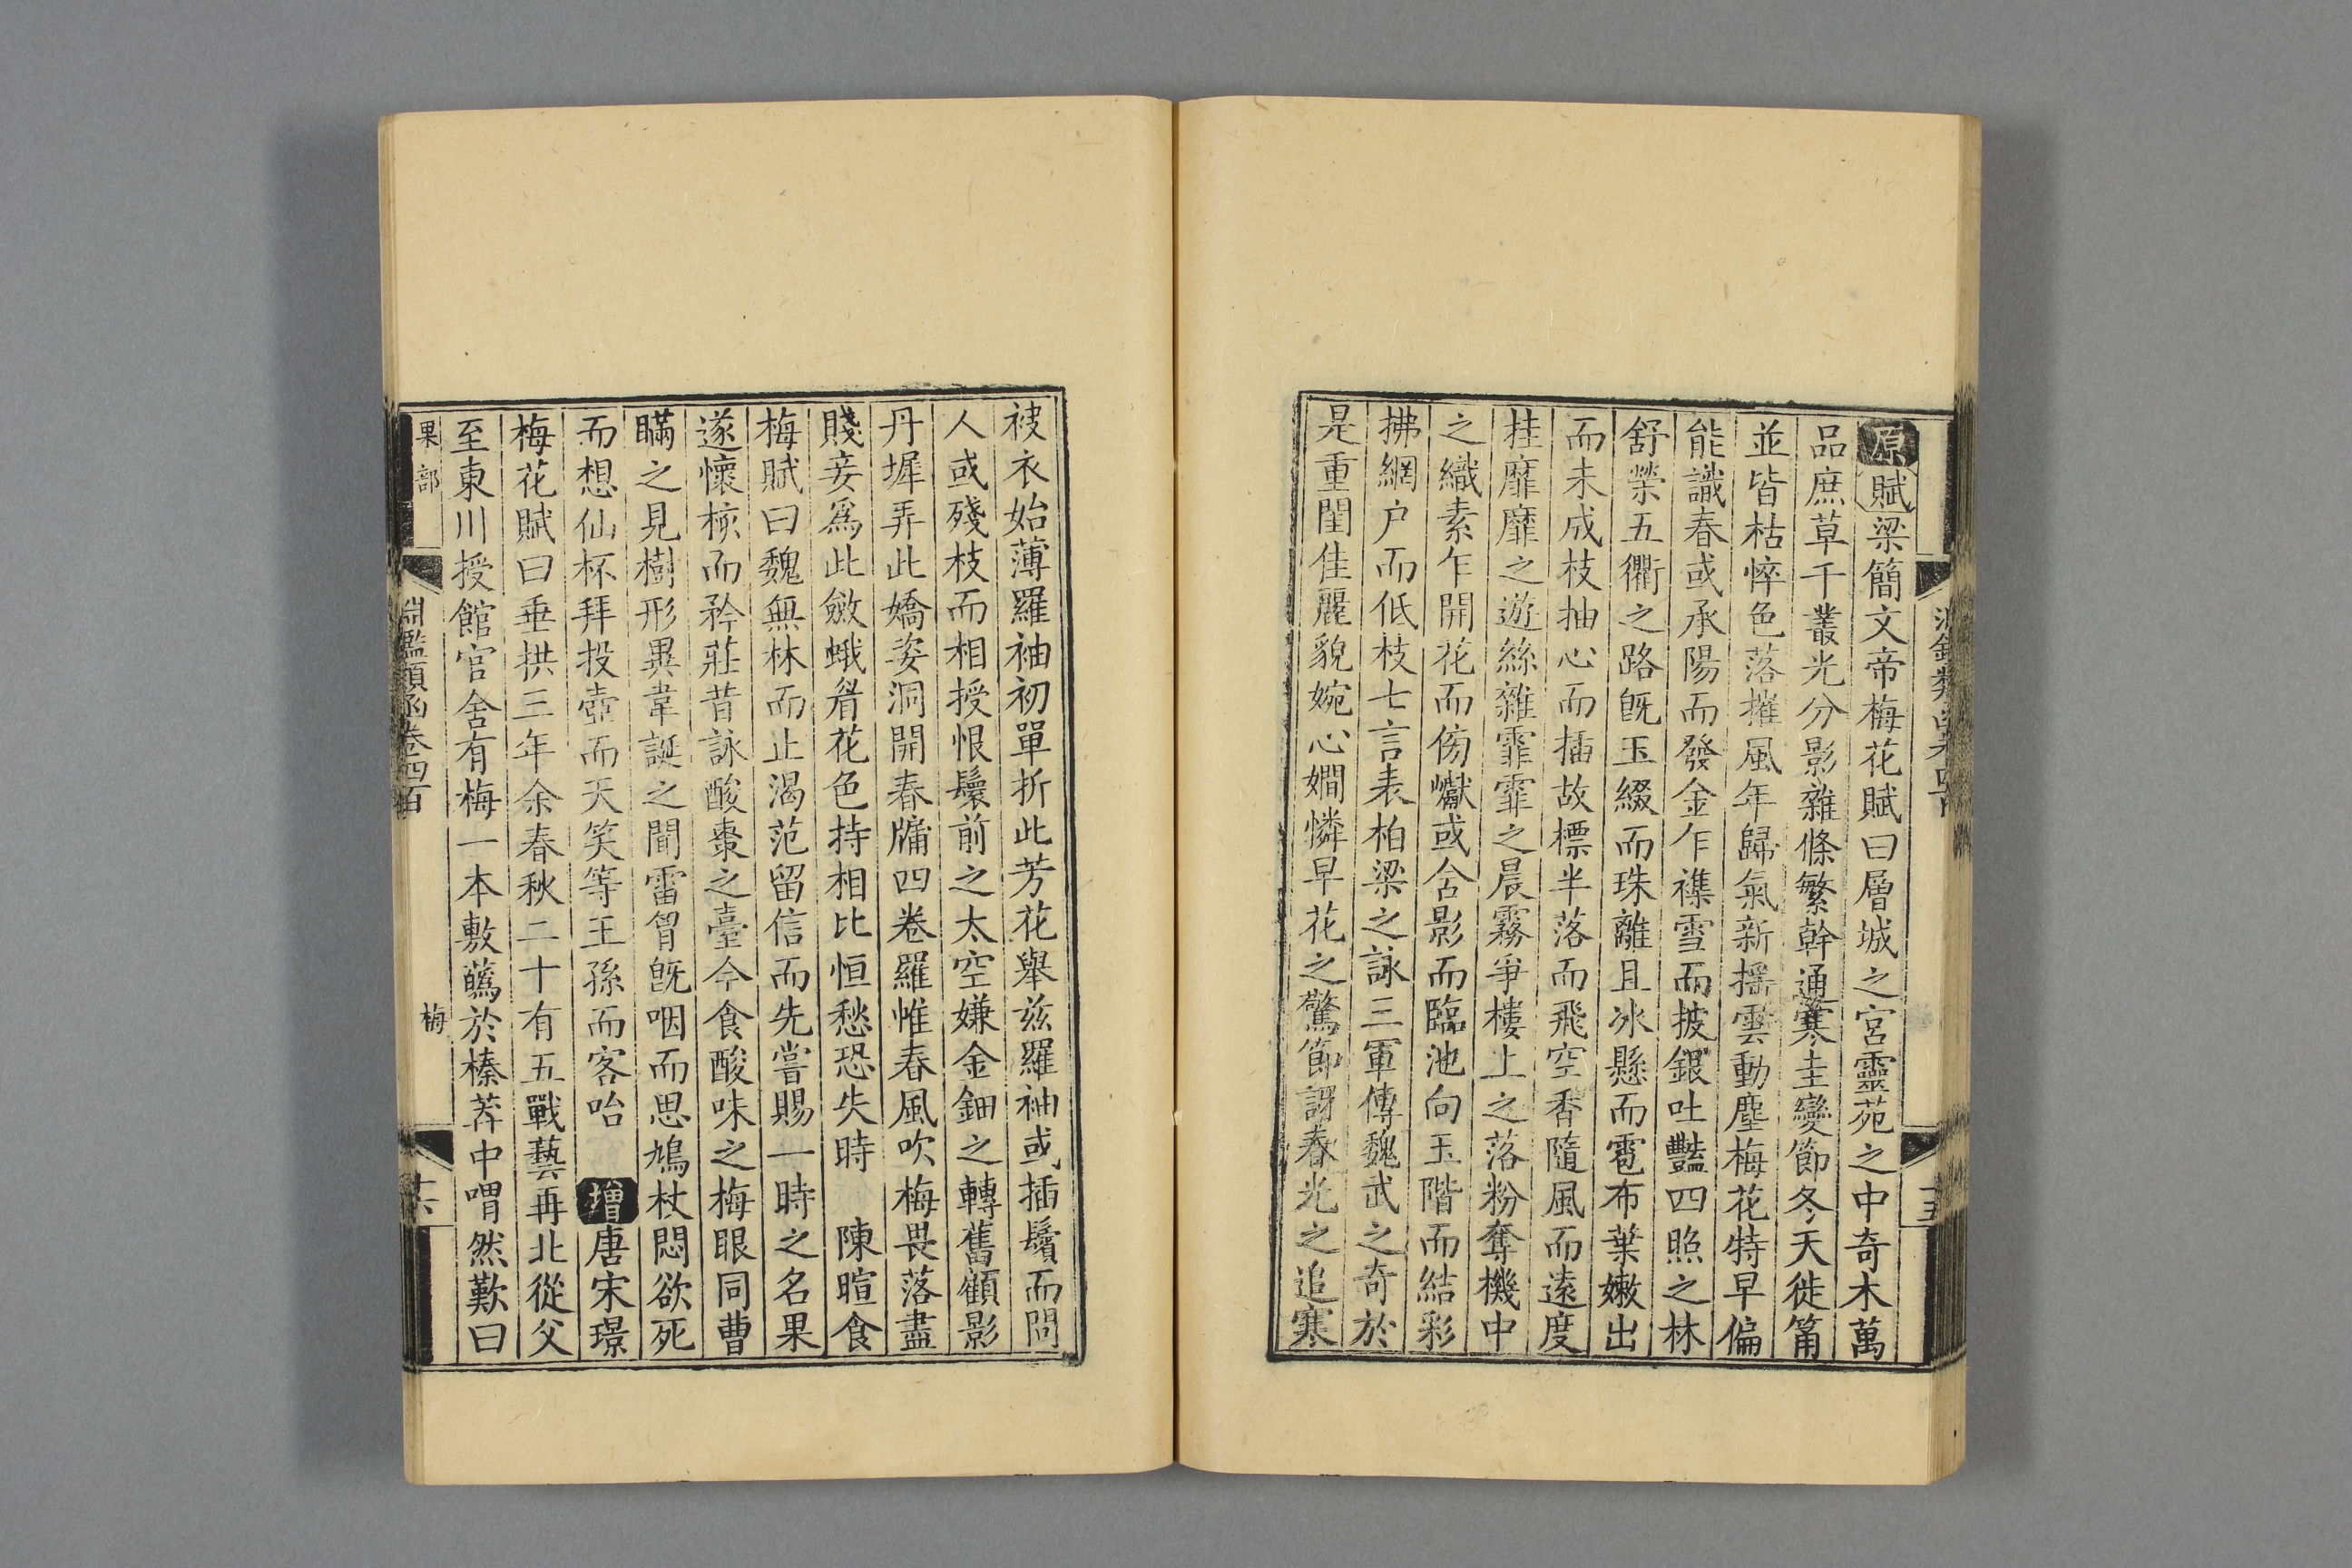 原賦梁簡文帝梅花賦曰層城之宮靈苑之中奇木萬
品庶草千叢光分影雜條繁幹通寒圭變節冬灰徙筩
並皆枯悴色落摧風年歸氣新揺雲動塵梅花特早偏
能識春或承陽而發金乍襍雪而披銀吐豔四照之林
舒榮五衢之路旣玉綴而珠離且冰懸而雹布葉嫩出
而未成枝抽心而插故標半落而飛空香隨風而遠度
挂靡靡之遊絲雜霏霏之晨霧爭樓上之落粉奪機中
之織素乍開花而傍巘或含影而臨池向玉階而結彩
拂網户而低枝七言表柏梁之詠三軍傳魏武之奇於
是重閨佳麗貌婉心嫺憐早花之驚節訝春光之追寒
十五
袚衣始薄羅袖初單折此芳花舉兹羅袖或插鬢而問
人或殘枝而相授恨鬟前之太空嫌金鈿之轉舊顧影
丹墀弄此嬌姿洞開春牖四卷羅帷春風吹梅畏落盡
賤妾爲此斂蛾眉花色持相比恒愁恐失時 陳暄食
梅賦曰魏無林而止渴范留信而先嘗賜一時之名果
遂懷核而矜莊昔詠酸棗之臺今食酸味之梅眼同曹
瞞之見樹形異韋誕之聞雷胷旣咽而思鳩杖悶欲死
而想仙杯拜投壺而天笑等王孫而客咍 增唐宋璟
梅花賦曰垂拱三年余春秋二十有五戰藝再北從父
至東川授館官舍有梅一本敷蘤於榛莽中喟然歎曰
果部
淵鑑類函卷四百
梅
十六